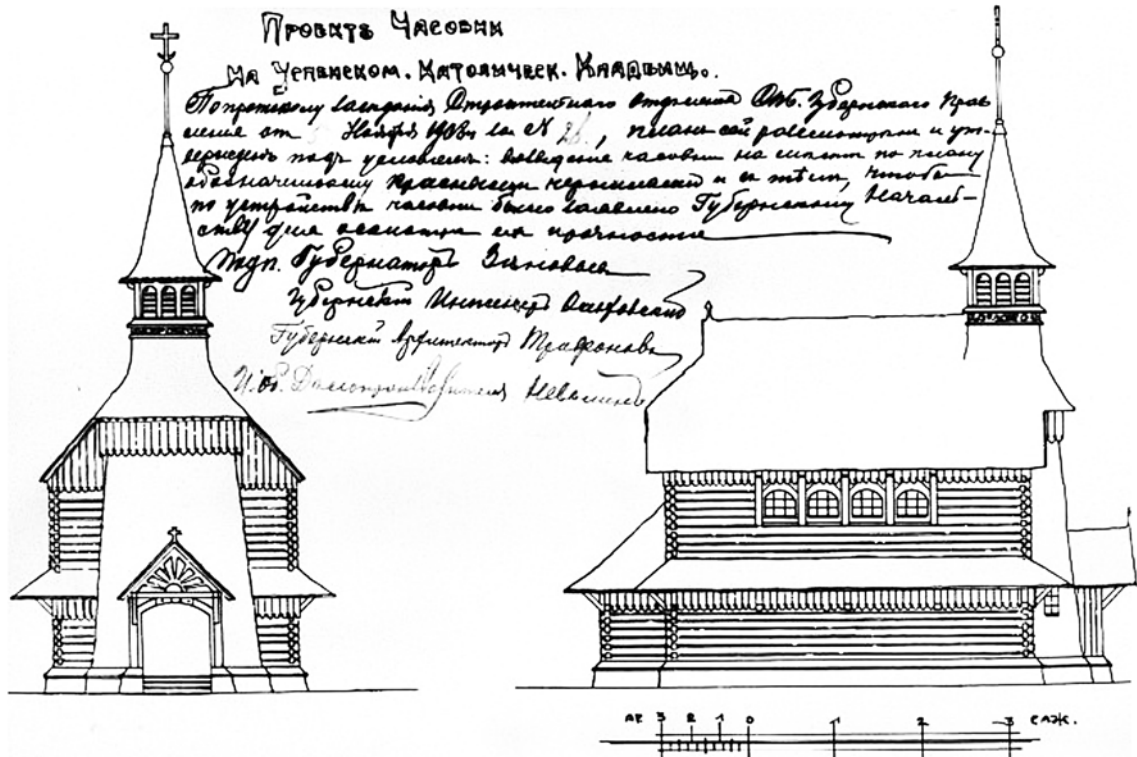 Проектъ Часовни
на Успенском. Католическ. Кладбищ.
По протоколу заседанія Строительнаго Отделенія СПб. Губернскаго Прав-
ленія от Ноября за №, планъ сей разсмотрен и ут-
вержденъ подъ условіем: возведенія часовни на месте по плану
обозначенному красными чернилами и с тѣм, чтобы
по устройствѣ часовни было заявлено Губернскому Началь-
ству для осмотра ея прочности
Подп. Губернаторъ Зиновьев
Губернскій Инженеръ
Губернскій Архитекторъ
И. об. Делопроизводителя
АР 3 2 1 0 1 2 3 САЖ.